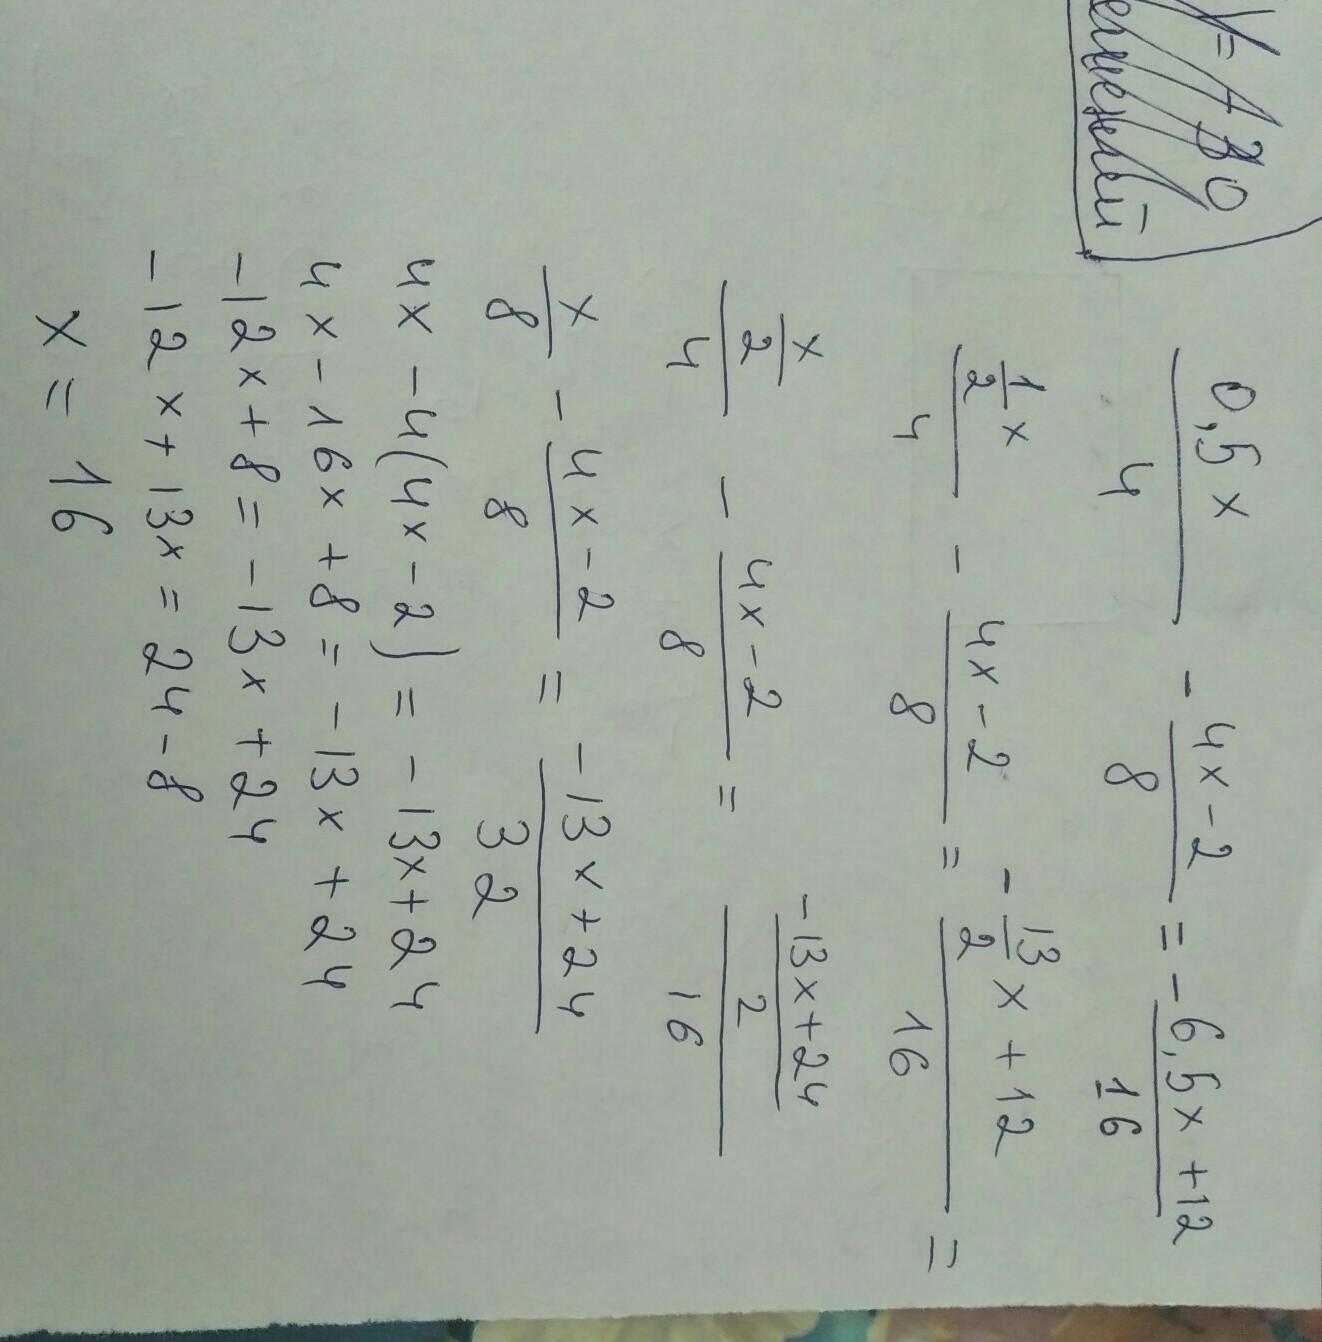 V= A BO
0,5x/4 - 4x-2/8 = -6,5x+12/16
1/2 x/4 - 4x-2/8 = -13/2 x+12/16 =
x/2/4 - 4x-2/8 = -13x+24/2/16
x/8 - 4x-2/8 = -13x+24/32
4x-4(4x-2) = -13x+24
4x-16x+8 = -13x+24
-12x+8 = -13x+24
-12x+13x = 24-8
x = 16